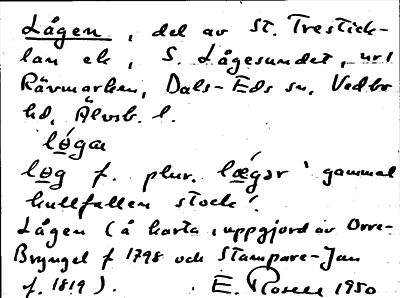 Lågen, del av St. Trestick-
lan ek, S. Lågesundet, nr 1
Rävmarken, Dals-Eds sn, Vedbo
hd, Älvsb. l.
lǫ́gɑ
lǫg f. plur. lǽgər 'gammal
kullfallen stock'.
Lågen (å karta, uppgjord av Orre-
Bryngel f 1798 och Stampare-Jan
f. 1819). E. Rosell 1950